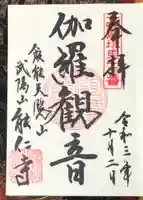 奉拝
令和三年
十月二日
伽羅観音
飯能天覧山
武陽山能仁寺